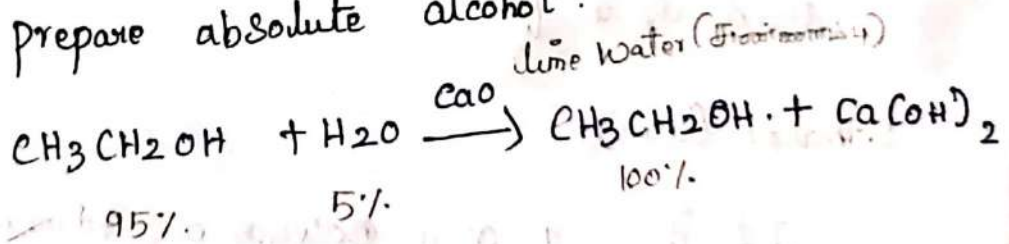 prepare absolute alcohol.
lime water
CH3CH2OH + H2O CaO → CH3CH2OH. + Ca(OH)2
95%. 5%. 100%.